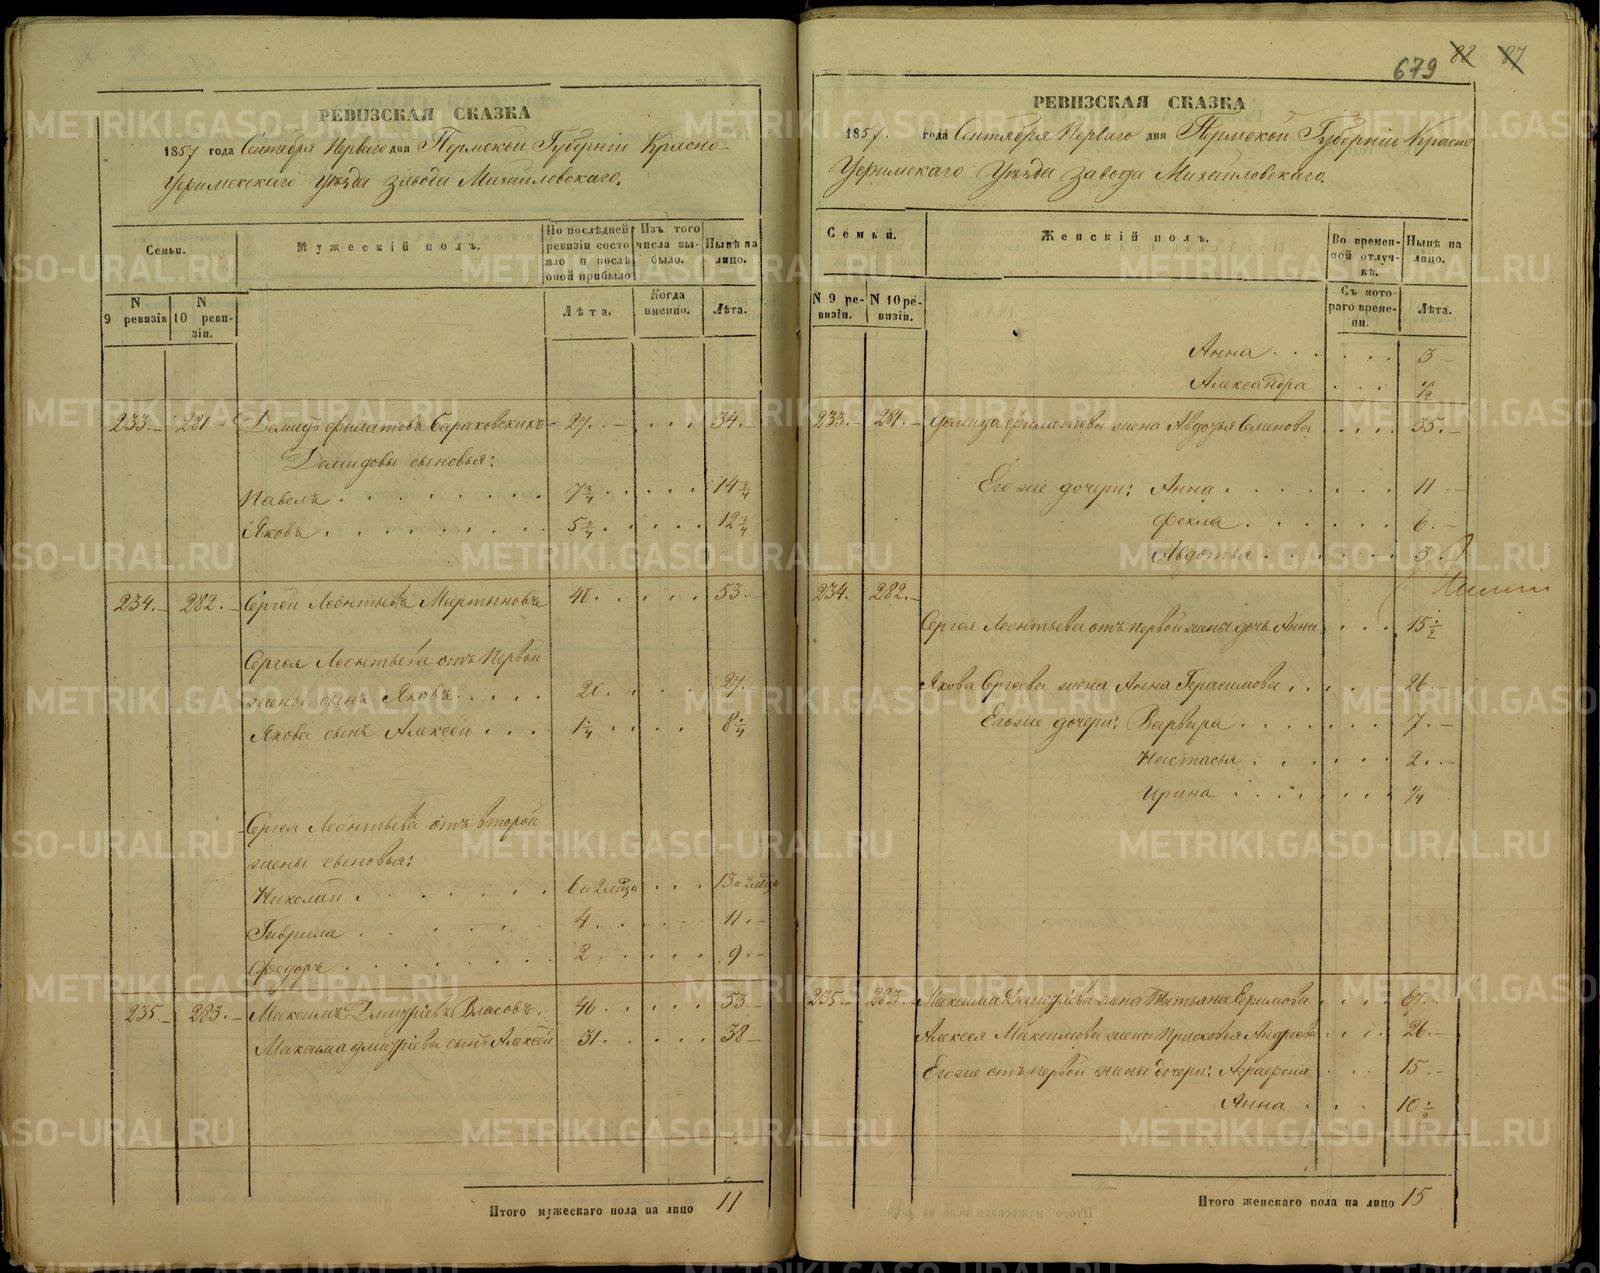 РЕВИЗСКАЯ СКАЗКА
1857 года Сентября Перваго дня Пермской Губерніи Красно-
Уфимскаго Уѣзда завода Михайловскаго.
Семьи.
Мужескій полъ.
По послѣдней ревизіи состояло и послѣ оной прибыло
Изъ того числа выбыло.
Нынѣ на лицо.
N 9 ревизіи
N 10 ревизіи.
Лѣта.
Когда именно.
Лѣта.
233. 281 Демидъ Филатовъ 27. 34.
Демидовы сыновья:
Павелъ 7 3/4 14 3/4
Яковъ 5 3/4 12 3/4
234. 282. Сергей Леонтьевъ Мартыновъ 46. 53.
Сергея Леонтьева отъ Первой
жены сынъ Яковъ 20. 27.
Якова сынъ Алексей 1 1/4 8 1/4
Сергея Леонтьева отъ второй
жены сыновья:
Николай 6 и 2 мѣца 13 и 2 мѣца
Гаврила 4 11.
Федоръ 2 9.
235 283. Максимъ Дмитріевъ Власовъ. 46 53
Максима Дмитріева сынъ Алексей 31. 38
Итого мужескаго пола на лицо 11
679 88 87
РЕВИЗСКАЯ СКАЗКА
1857. года Сентября Перваго дня Пермской Губерніи Красно
Уфимскаго Уѣзда завода Михайловскаго.
Семьи.
Женскій полъ.
Во временной отлучкѣ.
Нынѣ на лицо.
N 9 ревизіи.
N 10 ревизіи.
Съ котораго времени.
Лѣта.
Анна 3
Александра 1/2
233. 281. Демида Филатова жена Авдотья Семенова 35.
Его же дочери: Анна 11
Фекла 6.
Авдотья 3.
234. 282.
Сергея Леонтьева отъ первой жены дочь Анна 15 1/2
Якова Сергеева жена Анна Герасимова 26
Его же дочери: Варвара 7.
Настасья 2.
Ирина 1/4
235. 283. Максима Дмитріева жена Татьяна Ефимова 67.
Алексея Максимова жена Прасковья Андреева 26
Его же отъ первой жены дочери: Аграфена 15
Анна 10 1/2
Итого женскаго пола на лицо 15
METRIKI.GASO-URAL.RU